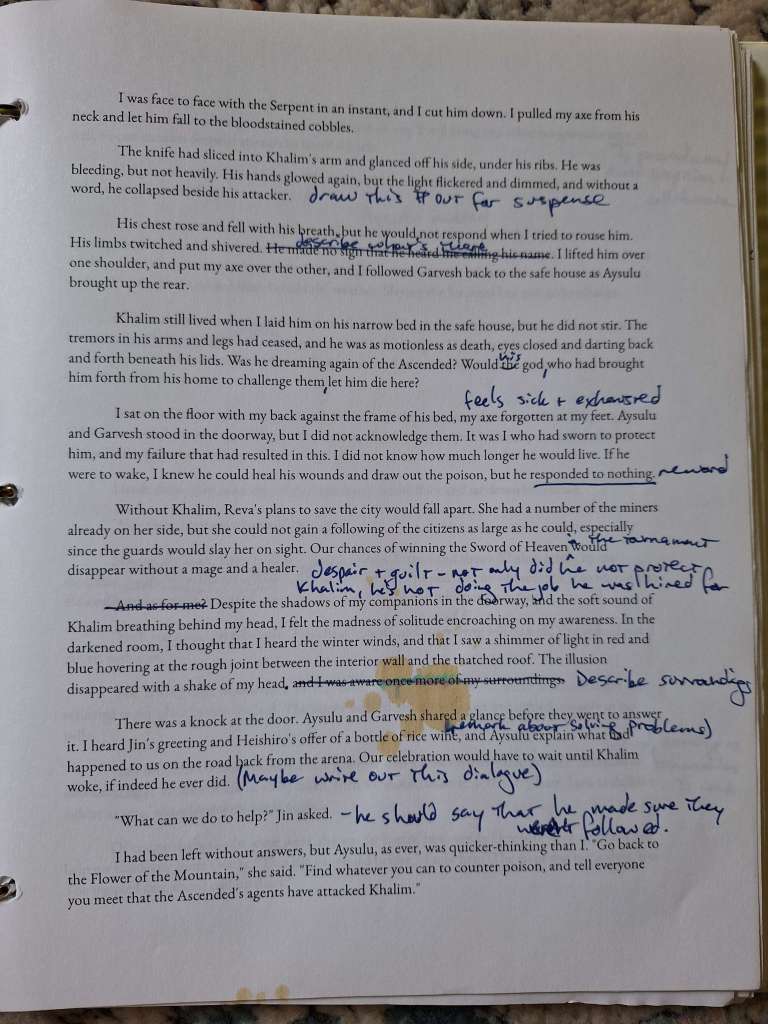 I was face to face with the Serpent in an instant, and I cut him down. I pulled my axe from his
neck and let him fall to the bloodstained cobbles.
The knife had sliced into Khalim's arm and glanced off his side, under his ribs. He was
bleeding, but not heavily. His hands glowed again, but the light flickered and dimmed, and without a
word, he collapsed beside his attacker. draw this ¶ out for suspense
His chest rose and fell with his breath, but he would not respond when I tried to rouse him.
describe what's there
His limbs twitched and shivered. He made no sign that he heard me calling his name. I lifted him over
one shoulder, and put my axe over the other, and I followed Garvesh back to the safe house as Aysulu
brought up the rear.
Khalim still lived when I laid him on his narrow bed in the safe house, but he did not stir. The
tremors in his arms and legs had ceased, and he was as motionless as death, eyes closed and darting back
his
and forth beneath his lids. Was he dreaming again of the Ascended? Would the god, who had brought
him forth from his home to challenge them, let him die here?
feels sick + exhausted
I sat on the floor with my back against the frame of his bed, my axe forgotten at my feet. Aysulu
and Garvesh stood in the doorway, but I did not acknowledge them. It was I who had sworn to protect
him, and my failure that had resulted in this. I did not know how much longer he would live. If he
were to wake, I knew he could heal his wounds and draw out the poison, but he responded to nothing. reword
Without Khalim, Reva's plans to save the city would fall apart. She had a number of the miners
already on her side, but she could not gain a following of the citizens as large as he could, especially
since the guards would slay her on sight. Our chances of winning the Sword of Heaven would
in the tournament
disappear without a mage and a healer. despair + guilt - not only did he not protect
Khalim, he's not doing the job he was hired for
And as for me? Despite the shadows of my companions in the doorway, and the soft sound of
Khalim breathing behind my head, I felt the madness of solitude encroaching on my awareness. In the
darkened room, I thought that I heard the winter winds, and that I saw a shimmer of light in red and
blue hovering at the rough joint between the interior wall and the thatched roof. The illusion
disappeared with a shake of my head. and I was aware once more of my surroundings. Describe surroundings
There was a knock at the door. Aysulu and Garvesh shared a glance before they went to answer
remark about solving problems)
it. I heard Jin's greeting and Heishiro's offer of a bottle of rice wine, and Aysulu explain what had
happened to us on the road back from the arena. Our celebration would have to wait until Khalim
woke, if indeed he ever did. (Maybe write out this dialogue)
"What can we do to help?" Jin asked. - he should say that he made sure they
weren't followed.
I had been left without answers, but Aysulu, as ever, was quicker-thinking than I. "Go back to
the Flower of the Mountain," she said. "Find whatever you can to counter poison, and tell everyone
you meet that the Ascended's agents have attacked Khalim."